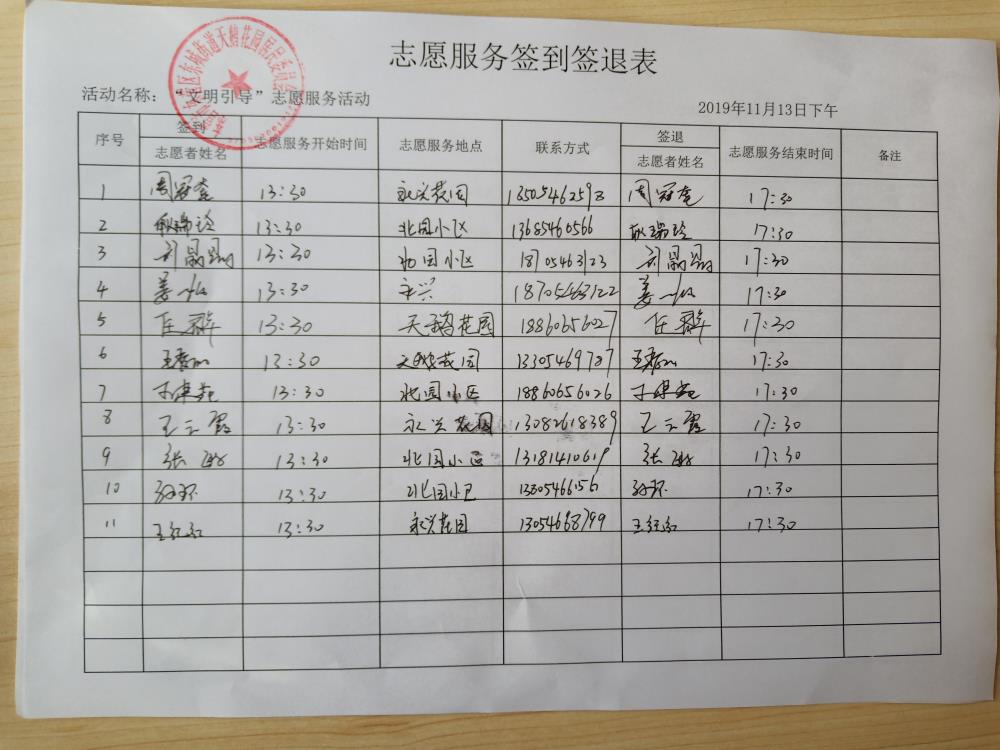 志愿服务签到签退表
活动名称："文明引导"志愿服务活动
2019年11月13日下午
序号 签到 志愿者姓名 志愿服务开始时间 志愿服务地点 联系方式 签退 志愿者姓名 志愿服务结束时间 备注
1 周冠奎 13:30 永兴花园 周冠奎 17:30
2 耿瑞玲 13:30 北园小区 13685460566 耿瑞玲 17:30
3 13:30 北园小区 18705463123 17:30
4 姜 13:30 永兴 18705463122 姜 17:30
5 任群 13:30 天鹅花园 18860656027 任群 17:30
6 13:30 天鹅花园 13305469787 17:30
7 13:30 北园小区 18860656026 17:30
8 王云霞 13:30 永兴花园 13082618389 王云霞 17:30
9 张 13:30 北园小区 13181410619 张 17:30
10 孙环 13:30 北园小区 13305466156 孙环 17:30
11 王红 13:30 永兴花园 13054668799 王红 17:30